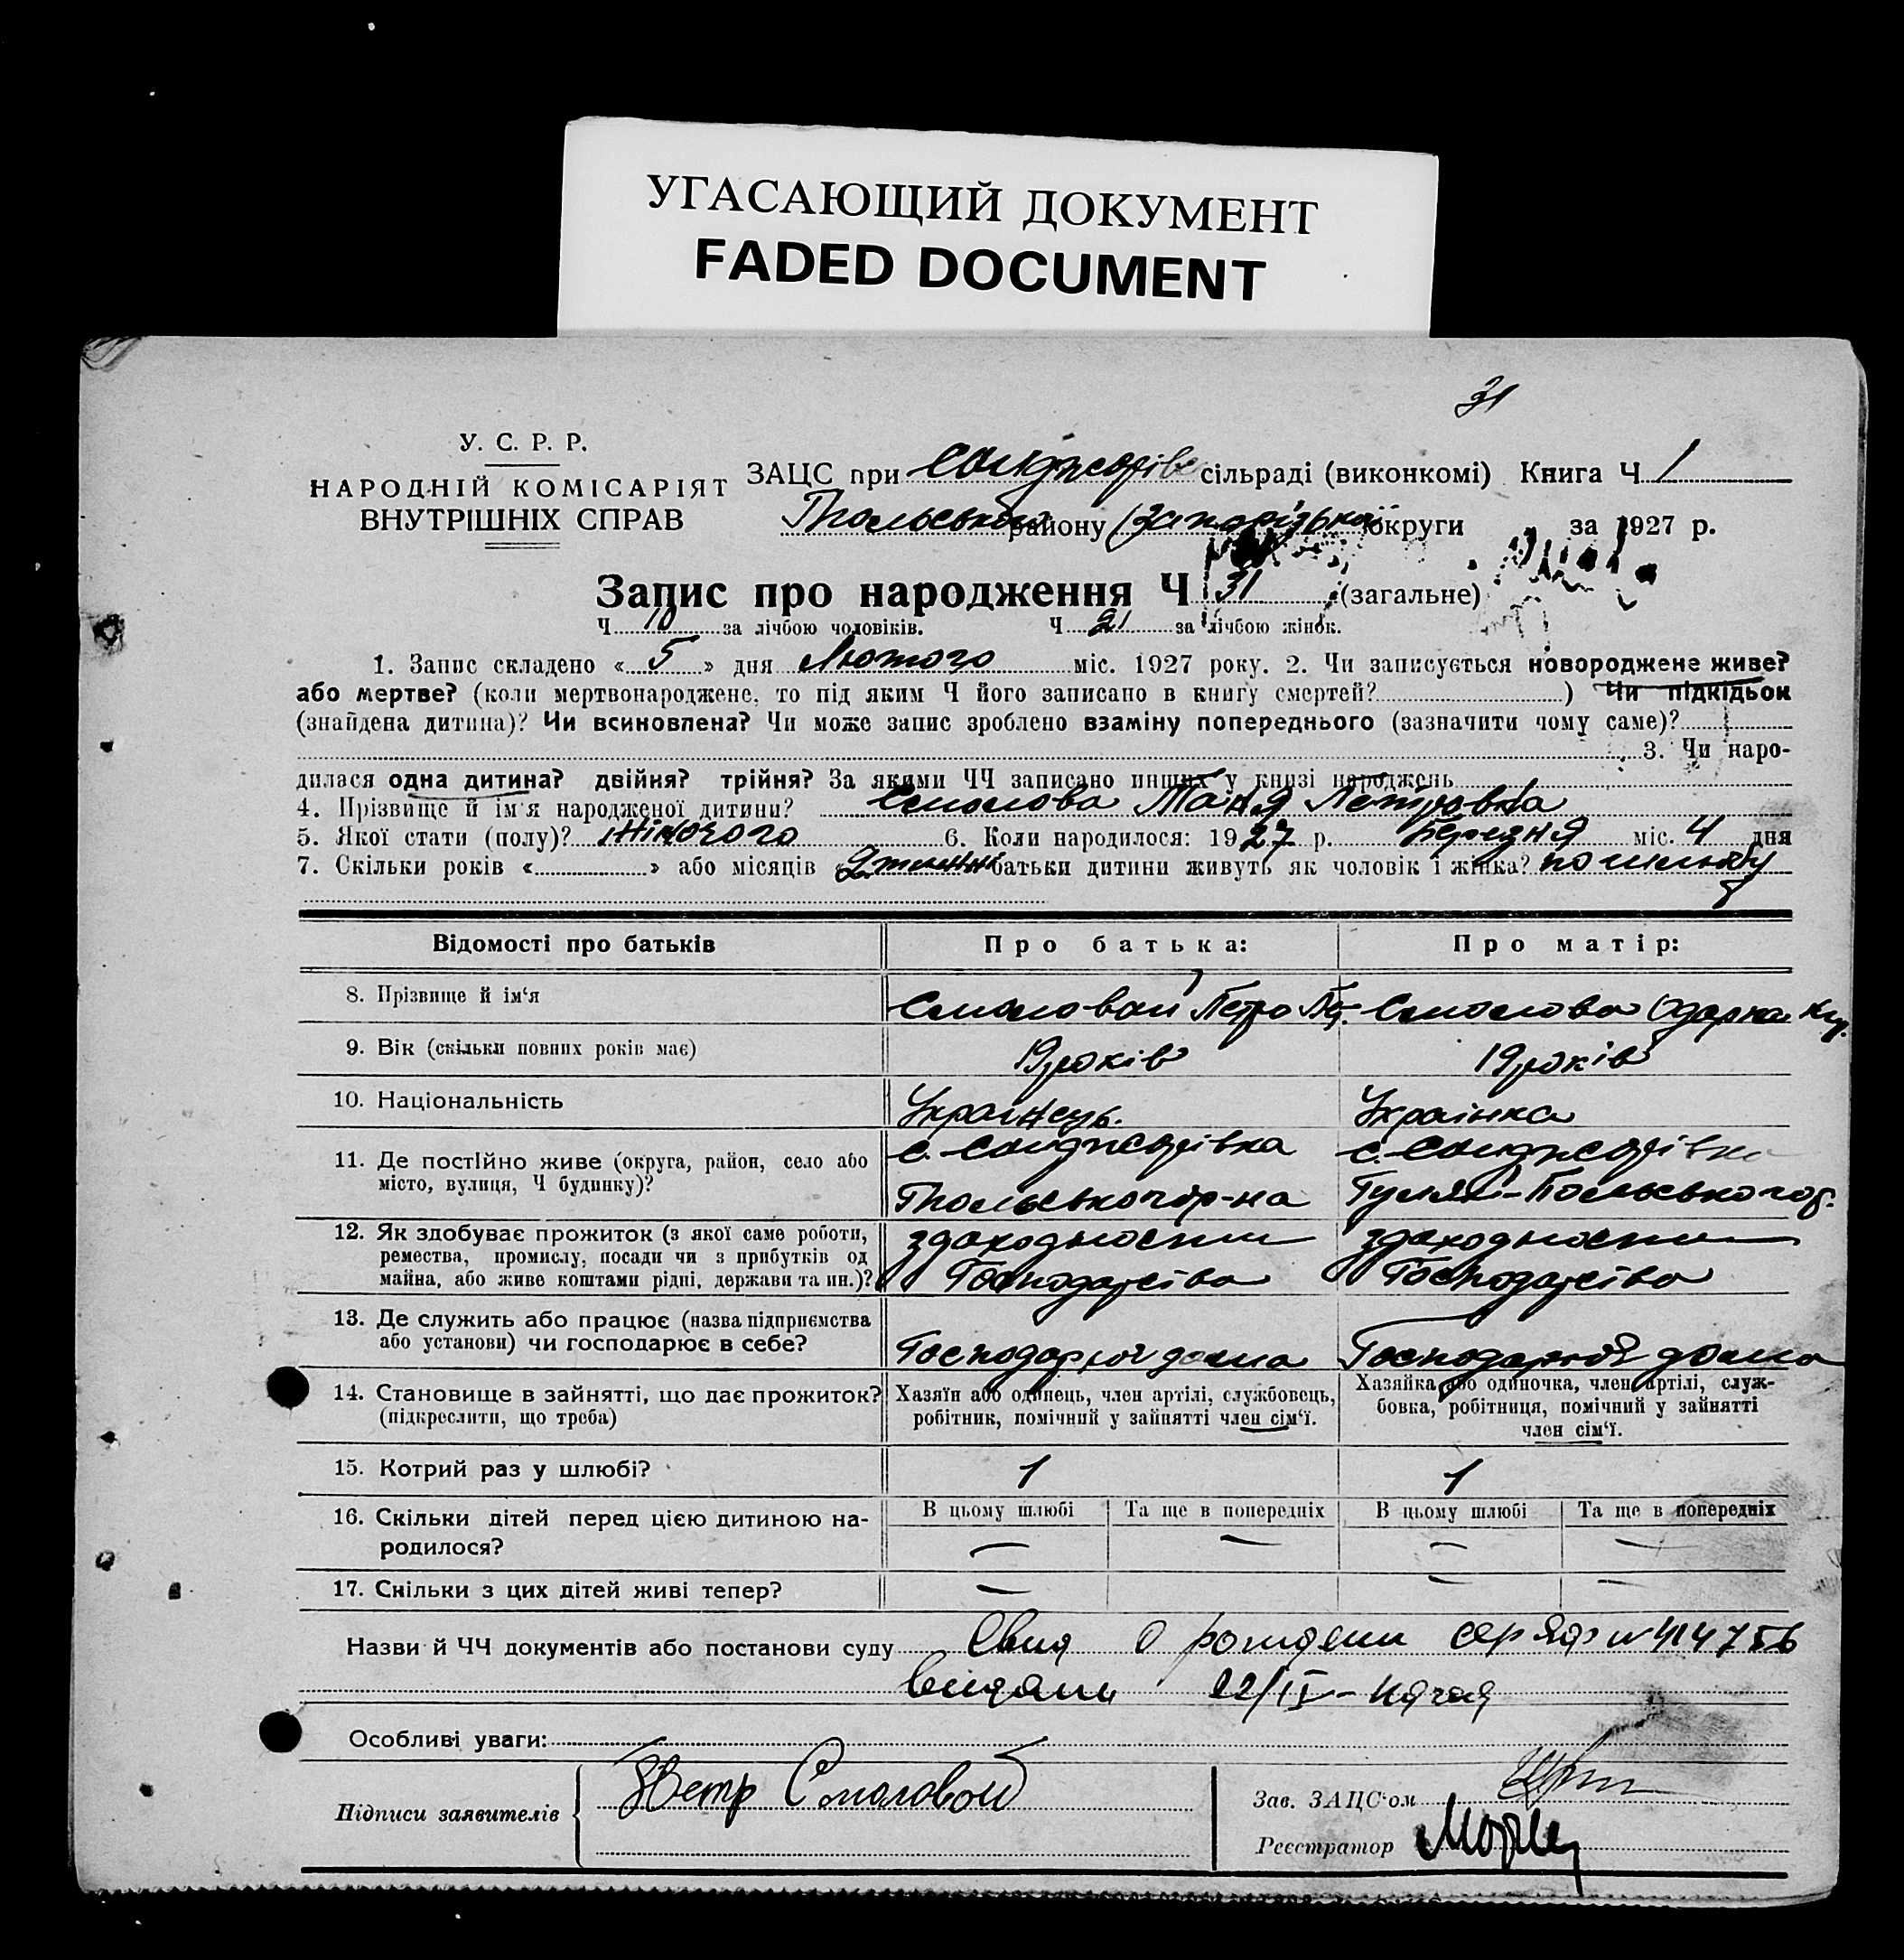 УГАСАЮЩИЙ ДОКУМЕНТ
FADED DOCUMENT
31
У. С. Р. Р.
НАРОДНІЙ КОМІСАРІЯТ
ВНУТРІШНІХ СПРАВ
ЗАЦС при сільраді (виконкомі) Книга Ч 1
Гпольського району Запорізької округи за 1927 р.
Запис про народження Ч 31 (загальне)
Ч 10 за лічбою чоловіків. Ч 21 за лічбою жінок.
1. Запис складено « 5 » дня Лютого міс. 1927 року. 2. Чи записується новороджене живе?
або мертве? (коли мертвонароджене, то під яким Ч його записано в книгу смертей? ) Чи підкідьок
(знайдена дитина)? Чи всиновлена? Чи може запис зроблено взаміну попереднього (зазначити чому саме)?
3. Чи наро-
дилася одна дитина? двійня? трійня? За якими ЧЧ записано инших у книзі народжень
4. Прізвище й ім'я народженої дитини? Смолова Маня Петровна
5. Якої стати (полу)? Жіночого 6. Коли народилося: 1927 р. Березня міс. 4 дня
7. Скільки років « » або місяців « батьки дитини живуть як чоловік і жінка? по шлюбу
Відомості про батьків
Про батька:
Про матір:
8. Прізвище й ім'я
Смоловий Петро
Смолова Одарка
9. Вік (скільки повних років має)
19 років
19 років
10. Національність
Українець.
Українка
11. Де постійно живе (округа, район, село або
місто, вулиця, Ч будинку)?
с. Санжарівка
Гпольського р-на
с. Санжарівка
Гуляй-Польського р.
12. Як здобуває прожиток (з якої саме роботи,
ремества, промислу, посади чи з прибутків од
майна, або живе коштами рідні, держави та ин.)?
здоходности
Господарства
здоходности
Господарства
13. Де служить або працює (назва підприємства
або установи) чи господарює в себе?
Господарює дома
Господарює дома
14. Становище в зайнятті, що дає прожиток?
(підкреслити, що треба)
Хазяїн або одинець, член артілі, службовець,
робітник, помічний у зайнятті член сім'ї.
Хазяйка або одиночка, член артілі, служ-
бовка, робітниця, помічний у зайнятті
член сім'ї.
15. Котрий раз у шлюбі?
1
1
16. Скільки дітей перед цією дитиною на-
родилося?
В цьому шлюбі
Та ще в попередніх
В цьому шлюбі
Та ще в попередніх
— — — —
17. Скільки з цих дітей живі тепер?
— — —
Назви й ЧЧ документів або постанови суду о рождении сер
22/IV
Особливі уваги:
Підписи заявителів
Петр Смоловой
Зав. ЗАЦС'ом
Реєстратор